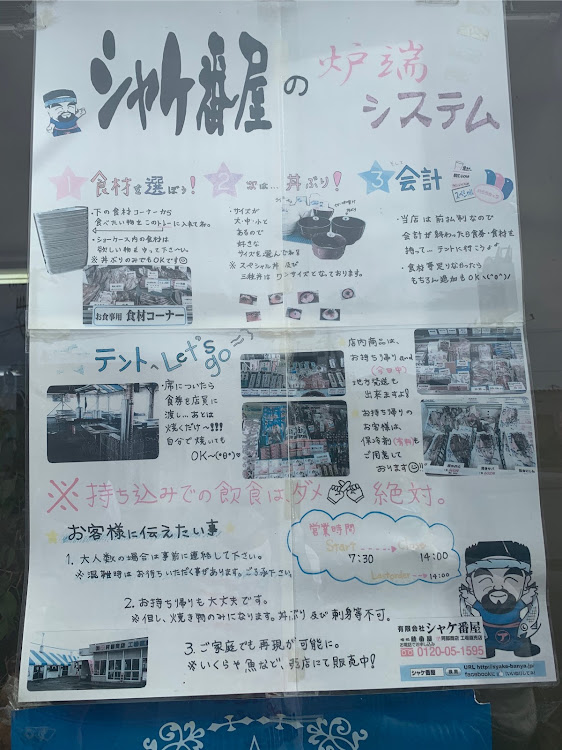 シャケ番屋の炉端システム
1 食材を選ぼう!
・下の食材コーナーから
食べたい物をこのトレーに入れてね。
・ショーケース内の食材は
欲しい物を言って下さ〜い。
※丼ぶりのみでもOKです
お食事用 食材コーナー
2 次は…丼ぶり!
・サイズが
大・中・小と
あるので
好きな
サイズを選んでね
※スペシャル丼及び
三種丼はワンサイズとなっております。
3 会計
・当店は前払制なので
会計が終わったら食券・食材を
持って… テントに行こう
・食材等足りなかったら
もちろん追加もOK
テントへLet's go
・席についたら
食券を店員に
渡し…あとは
焼くだけ〜!!!
自分で焼いても
OK〜
店内商品は、
お持ち帰り and
地方発送も
出来ますよ!
お持ち帰りの
お客様は、
保冷剤(有料)も
ご用意して
おります!!
※持ち込みでの飲食はダメ 絶対。
お客様に伝えたい事
1. 大人数の場合は事前に連絡して下さい。
※混雑時はお待ちいただく事があります。ご了承下さい。
2. お持ち帰りも大丈夫です。
※但し、焼き物のみになります。丼ぶり及び刺身等不可。
3. ご家庭でも再現が可能に。
※いくらや魚など、当店にて販売中!
営業時間
Start Close
7:30 14:00
Lastorder 14:00
有限会社 シャケ番屋
0120-05-1595
シャケ番屋 検索
URL http://syake-banya.jp/